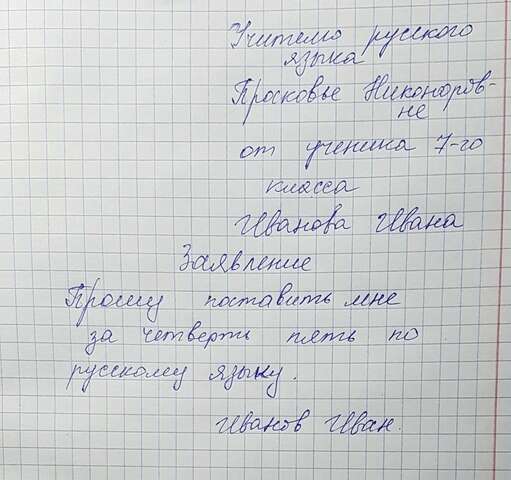 Учителю русского
языка
Просковье Никоноров-
не
от ученика 7-го
класса
Иванова Ивана
Заявление
Прошу поставить мне
за четверть пять по
русскому языку.
Иванов Иван.